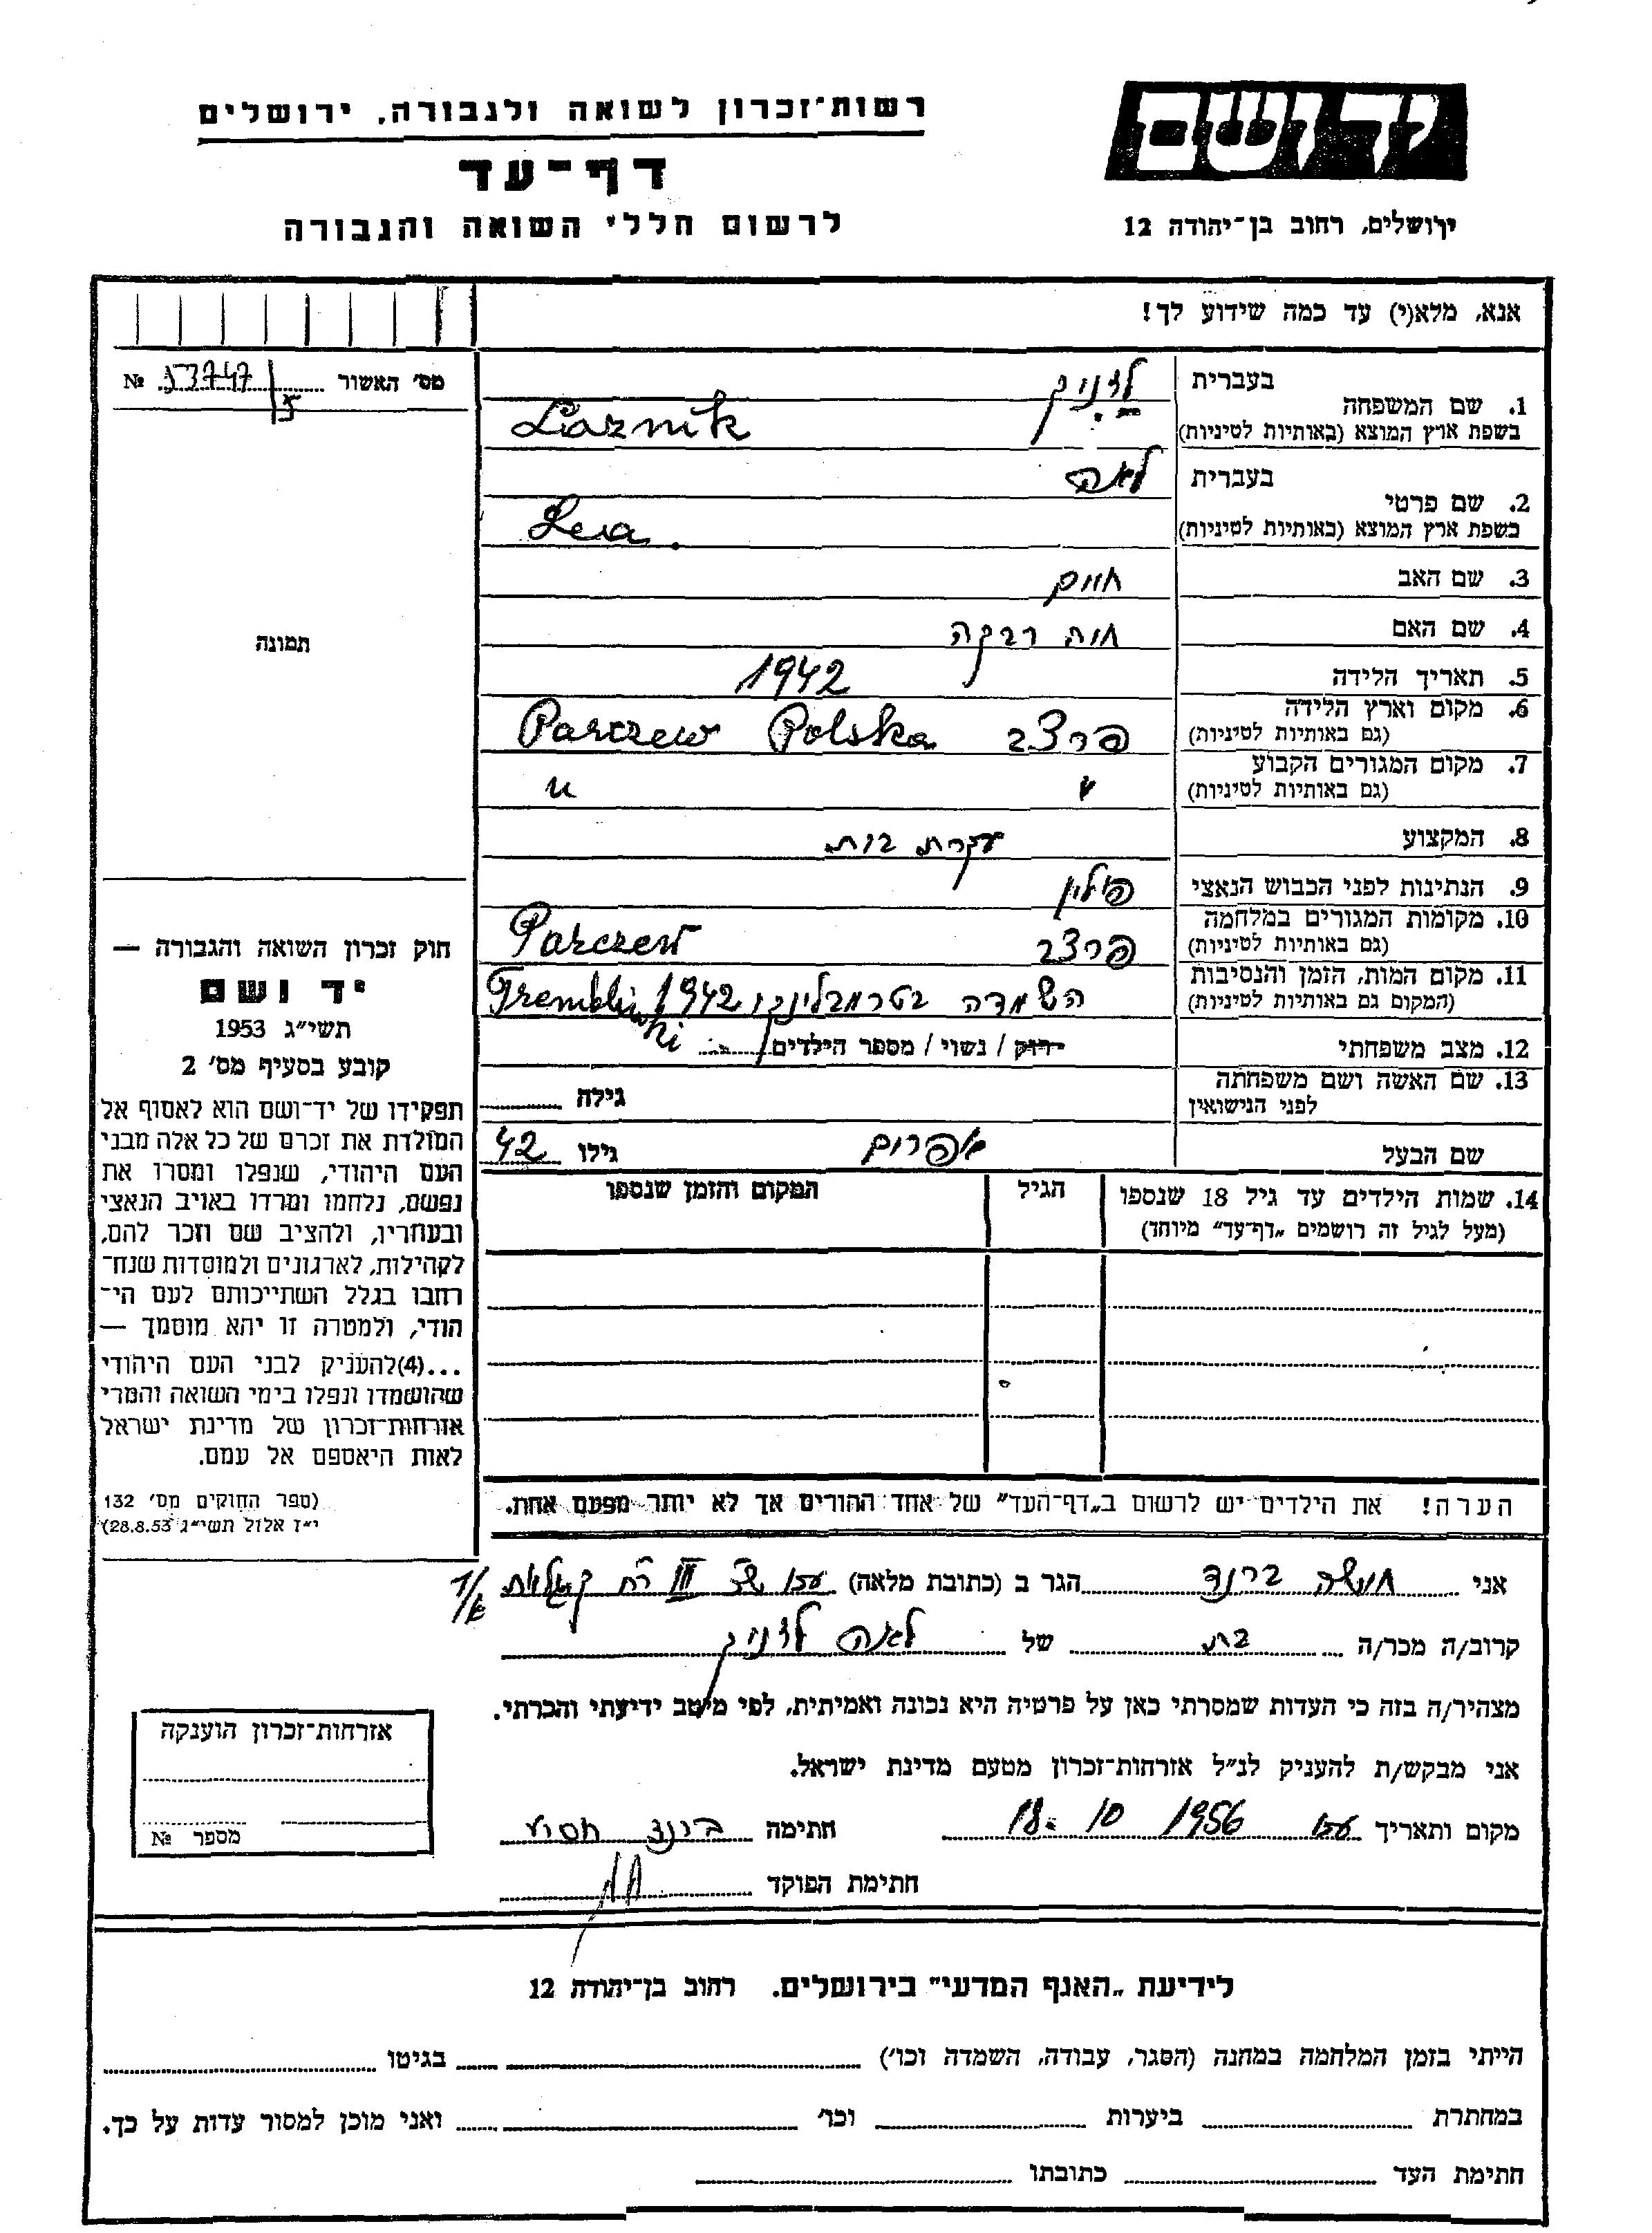 רשות־זכרון לשואה ולגבורה, ירושלים
דף־עד
לרשום חללי השואה והגבורה
יד ושם
ירושלים, רחוב בן־יהודה 12
אנא, מלא(י) עד כמה שידוע לך!
מס׳ האשור 53747 №
1. שם המשפחה
בעברית לזניק
בשפת ארץ המוצא (באותיות לטיניות) Laznik
2. שם פרטי
בעברית לאה
בשפת ארץ המוצא (באותיות לטיניות) Lea.
3. שם האב חיים
4. שם האם חוה רבקה
5. תאריך הלידה 1942
6. מקום וארץ הלידה
(גם באותיות לטיניות) פרצב Parczew Polska
7. מקום המגורים הקבוע
(גם באותיות לטיניות) " "
8. המקצוע עקרת בית
9. הנתינות לפני הכבוש הנאצי פולין
10. מקומות המגורים במלחמה
(גם באותיות לטיניות) פרצב Parczew
11. מקום המות, הזמן והנסיבות
(המקום גם באותיות לטיניות) השמדה בטרמבלינקי 1942 Tremblinki
12. מצב משפחתי רוק / נשוי / מספר הילדים
13. שם האשה ושם משפחתה
לפני הנישואין גילה
שם הבעל אפרים גילו 42
14. שמות הילדים עד גיל 18 שנספו
(מעל לגיל זה רושמים „דף־עד” מיוחד)
הגיל
המקום והזמן שנספו
הערה! את הילדים יש לרשום ב„דף־העד” של אחד ההורים אך לא יותר מפעם אחת.
תמונה
חוק זכרון השואה והגבורה —
יד ושם
תשי״ג 1953
קובע בסעיף מס׳ 2
תפקידו של יד־ושם הוא לאסוף אל
המולדת את זכרם של כל אלה מבני
העם היהודי, שנפלו ומסרו את
נפשם, נלחמו ומרדו באויב הנאצי
ובעוזריו, ולהציב שם וזכר להם,
לקהילות, לארגונים ולמוסדות שנח־
רבו בגלל השתייכותם לעם הי־
הודי, ולמטרה זו יהא מוסמך —
...(4)להעניק לבני העם היהודי
שהושמדו ונפלו בימי השואה והמרי
אזרחות־זכרון של מדינת ישראל
לאות היאספם אל עמם.
(ספר החוקים מס׳ 132
י״ז אלול תשי״ג 28.8.53)
אני ברנד הגר ב (כתובת מלאה) III רח
קרוב/ה מכר/ה בת של לאה לזניק
מצהיר/ה בזה כי העדות שמסרתי כאן על פרטיה היא נכונה ואמיתית, לפי מיטב ידיעתי והכרתי.
אני מבקש/ת להעניק לנ״ל אזרחות־זכרון מטעם מדינת ישראל.
מקום ותאריך 18. 10 1956 חתימה ברנד
חתימת הפוקד
אזרחות־זכרון הוענקה
מספר №
לידיעת „האגף המדעי” בירושלים. רחוב בן־יהודה 12
הייתי בזמן המלחמה במחנה (הסגר, עבודה, השמדה וכו׳) בגיטו
במחתרת ביערות וכו׳ ואני מוכן למסור עדות על כך.
חתימת העד כתובתו